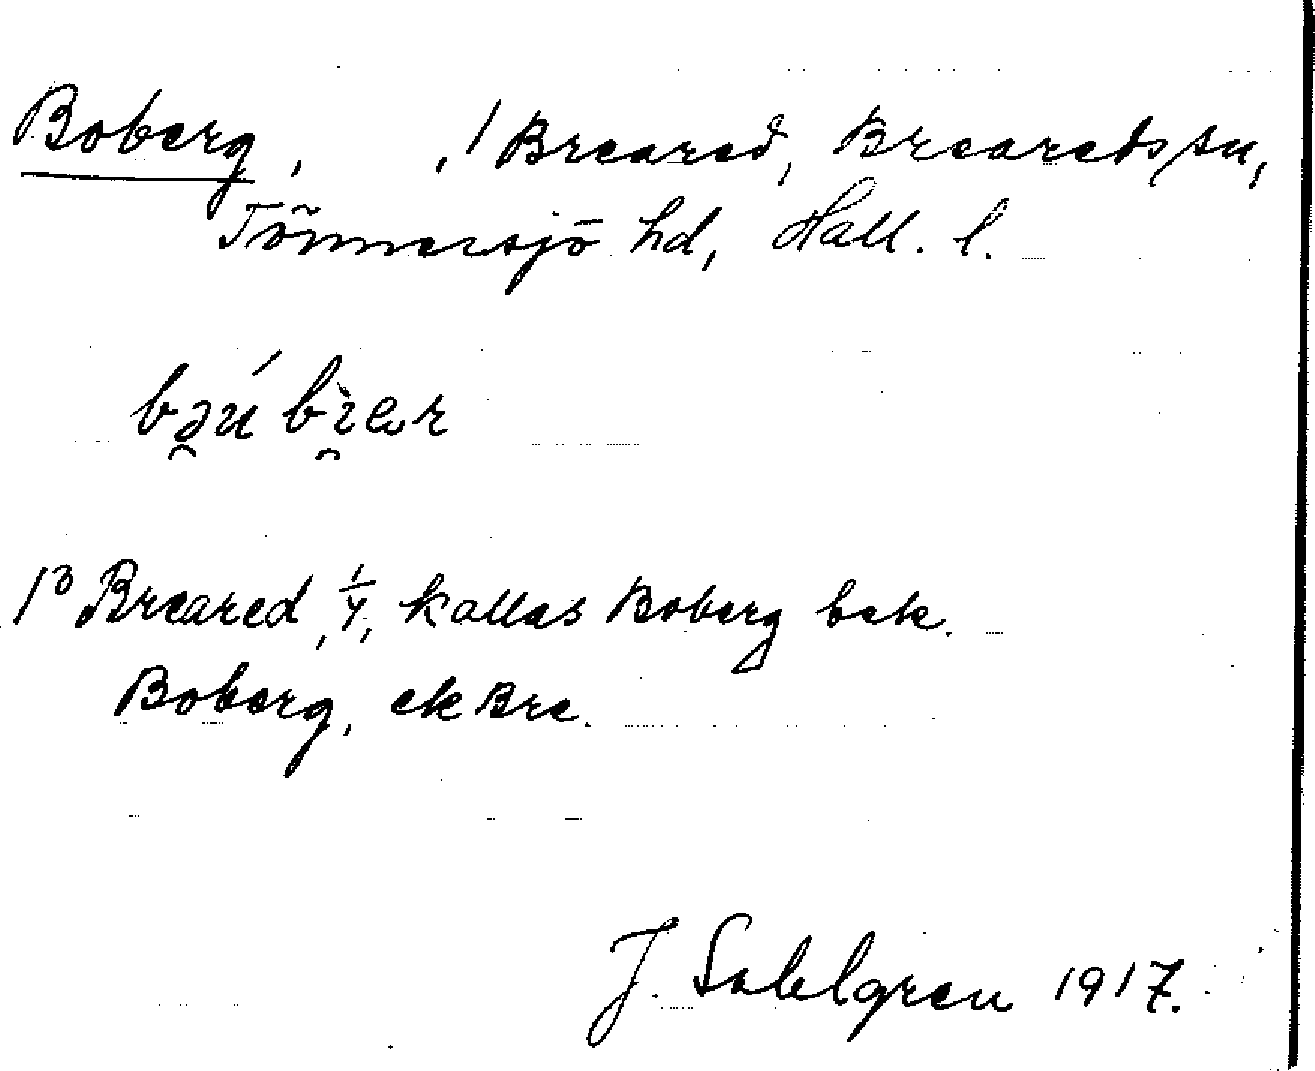 Boberg, , / Breared, Breareds sn,
Tönnersjö hd, Hall. l.
1³ Breared, 1/4, kallas Boberg bek.
Boberg, ek Bre.
J. Sahlgren 1917.